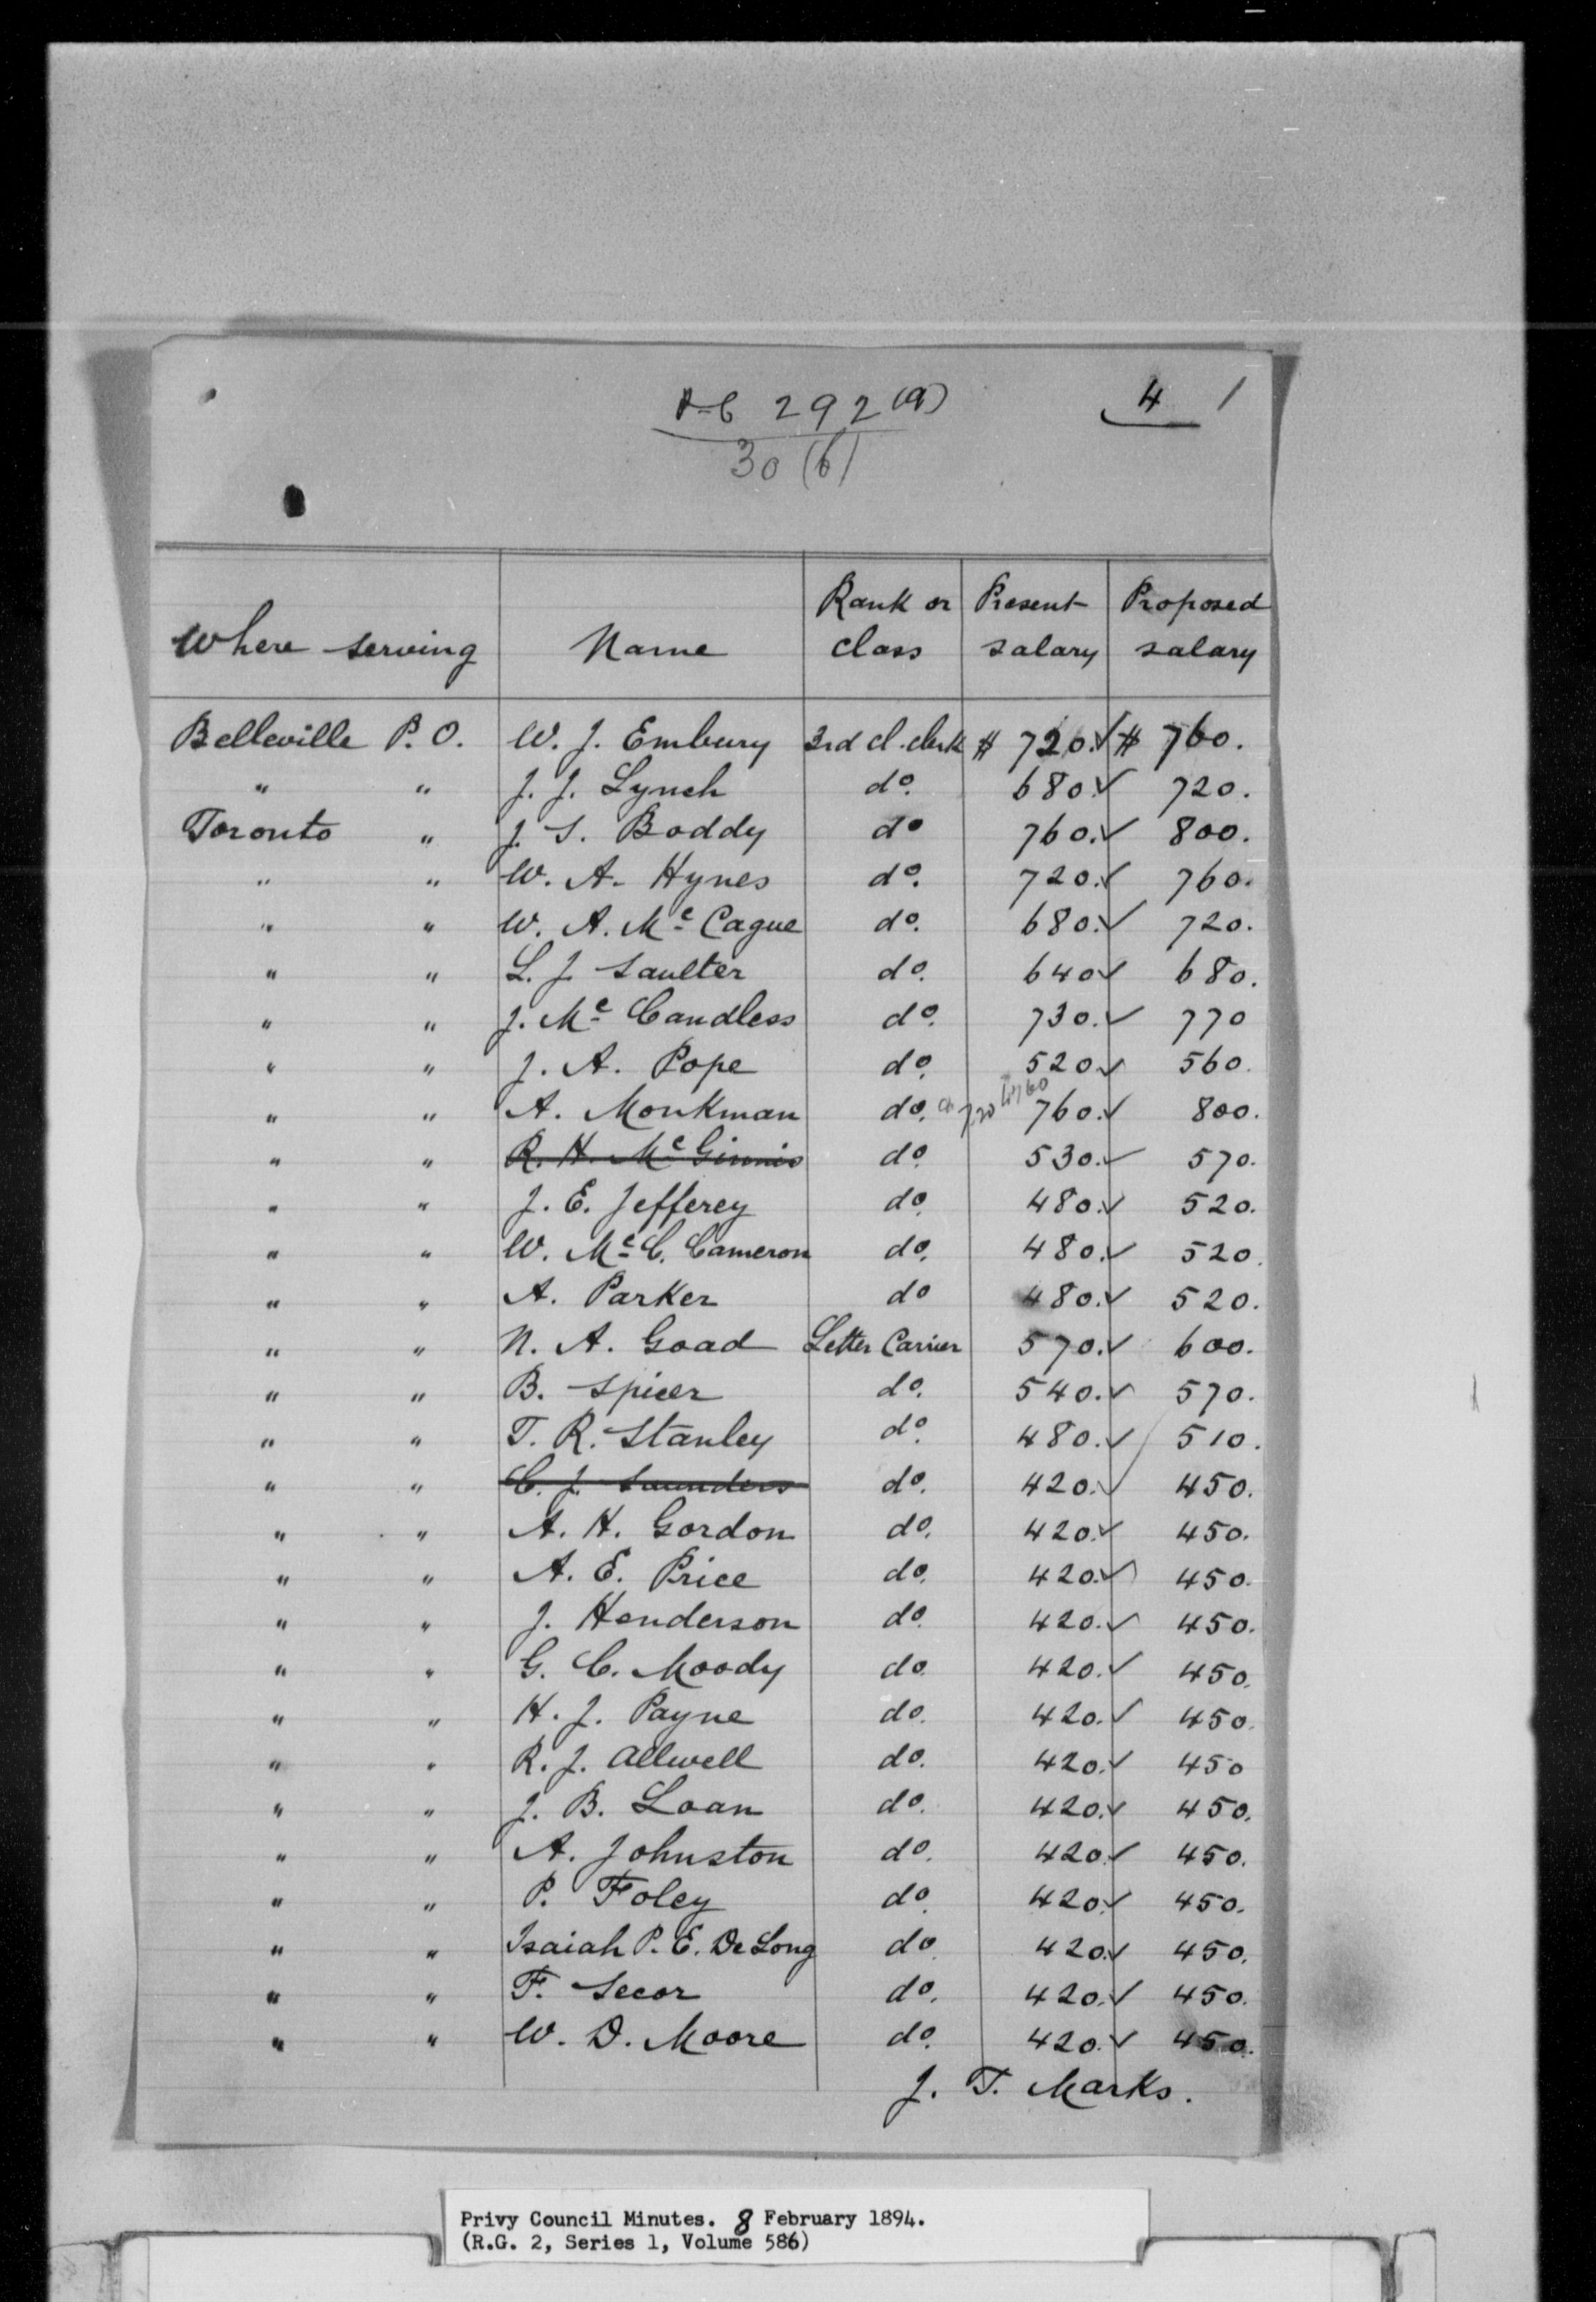 292 (a)
4 /
30 (b)
Where serving Name Rank or class Present salary Proposed salary
Belleville P. O. W. J. Embury 3rd cl. clerk $ 720.✓ $ 760.
" " J. J. Lynch do. 680.✓ 720.
Toronto " J. S. Boddy do 760.✓ 800.
" " W. A. Hynes do. 720.✓ 760.
" " W. A. Mc Cague do. 680.✓ 720.
" " L. J. Saulter do. 640✓ 680.
" " J. Mc Candless do. 730.✓ 770
" " J. A. Pope do. 520✓ 560.
" " A. Monkman do. 720 760 760.✓ 800.
" " R. H. Mc Ginnis do. 530.✓ 570.
" " J. E. Jefferey do. 480.✓ 520.
" " W. Mc C. Cameron do. 480.✓ 520.
" " A. Parker do 480.✓ 520.
" " N. A. Goad Letter Carrier 570.✓ 600.
" " B. Spicer do. 540.✓ 570.
" " T. R. Stanley do. 480.✓ 510.
" " C. J. Saunders do. 420.✓ 450.
" " A. H. Gordon do. 420.✓ 450.
" " A. E. Price do. 420.✓ 450.
" " J. Henderson do. 420.✓ 450.
" " G. C. Moody do. 420.✓ 450.
" " H. J. Payne do. 420.✓ 450.
" " R. J. Allwell do. 420.✓ 450
" " J. B. Loan do. 420.✓ 450.
" " A. Johnston do. 420.✓ 450.
" " P. Foley do. 420.✓ 450.
" " Isaiah P. E. De Long do. 420.✓ 450.
" " F. Secor do. 420.✓ 450.
" " W. D. Moore do. 420.✓ 450.
J. T. Marks.
Privy Council Minutes. 8 February 1894.
(R.G. 2, Series 1, Volume 586)